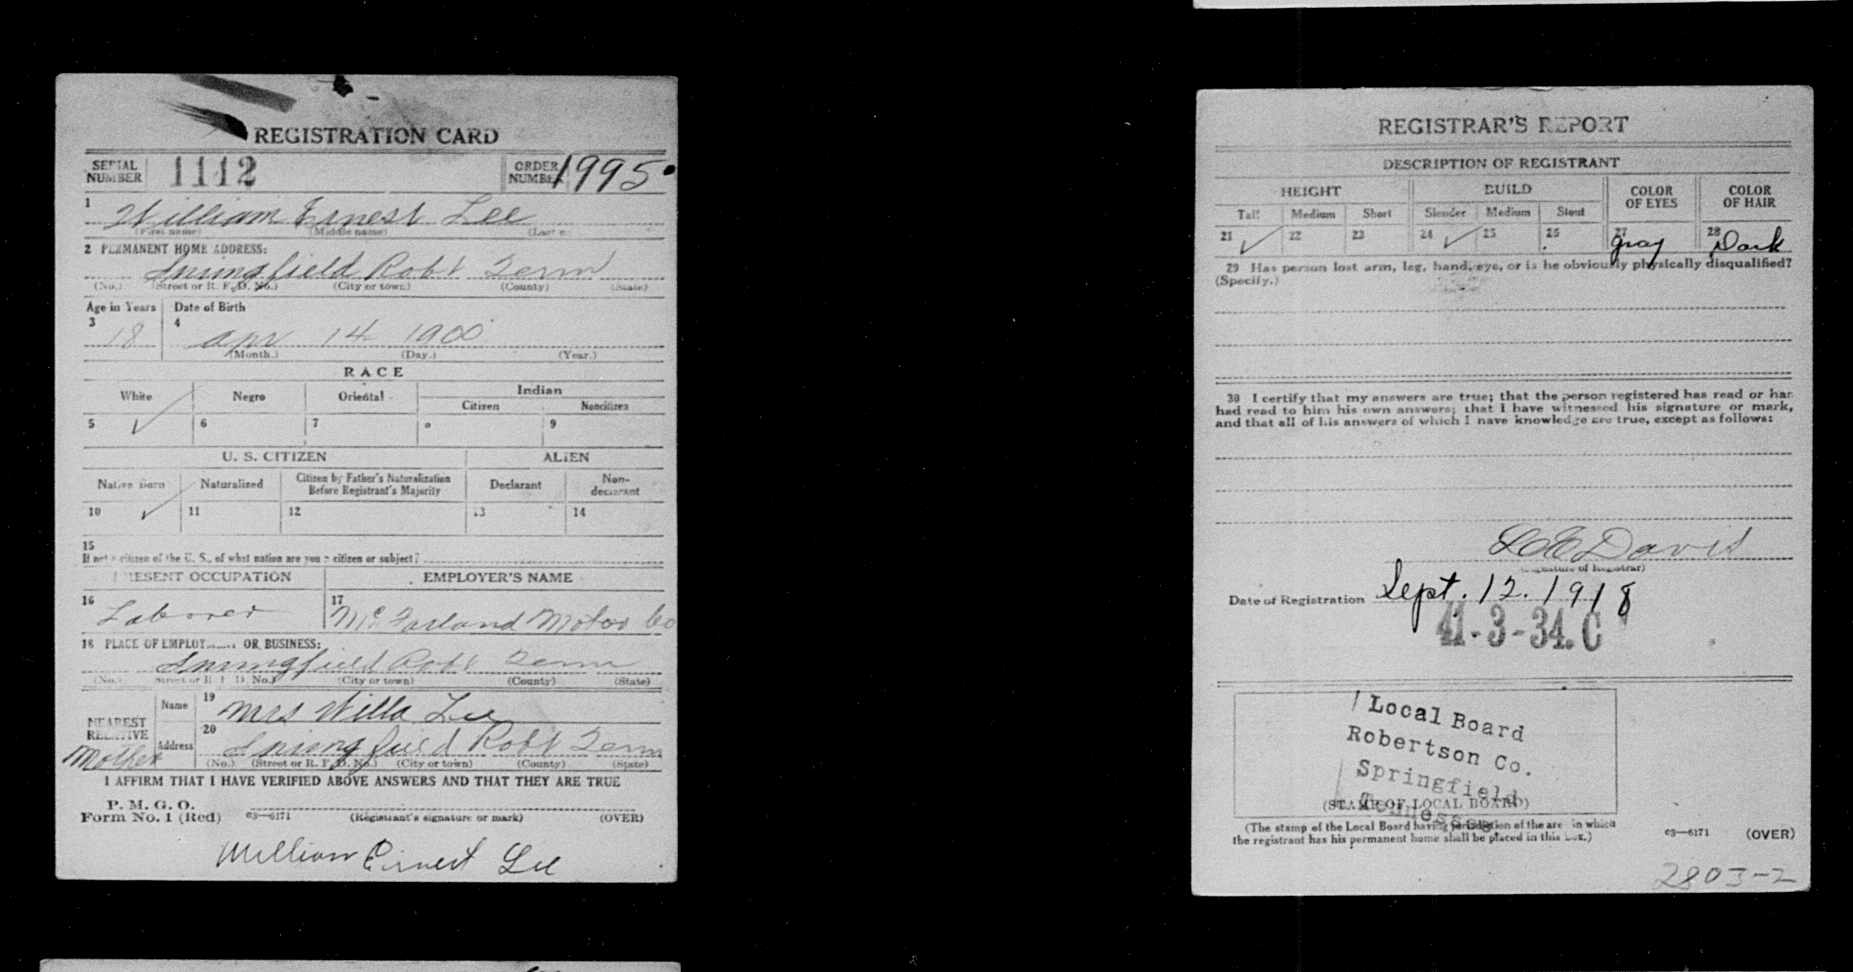 REGISTRATION CARD
SERIAL NUMBER 1112 ORDER NUMBER 1995
1 William Ernest Lee
(First name) (Middle name) (Last name)
2 PERMANENT HOME ADDRESS:
Springfield Robt Tenn
(No.) (Street or R. F. D. No.) (City or town) (County) (State)
Age in Years Date of Birth
3 18 4 Apr 14 1900
(Month.) (Day.) (Year.)
RACE
White Negro Oriental Indian
Citizen Noncitizen
5 ✓ 6 7 8 9
U. S. CITIZEN ALIEN
Native Born Naturalized Citizen by Father's Naturalization Before Registrant's Majority Declarant Non-declarant
10 ✓ 11 12 13 14
15
If not a citizen of the U. S., of what nation are you a citizen or subject?
PRESENT OCCUPATION EMPLOYER'S NAME
16 Laborer 17 McFarland Motor Co
18 PLACE OF EMPLOYMENT OR BUSINESS:
Springfield Robt Tenn
(No.) (Street or R. F. D. No.) (City or town) (County) (State)
NEAREST RELATIVE Name 19 Mrs Willa Lee
Mother Address 20 Springfield Robt Tenn
(No.) (Street or R. F. D. No.) (City or town) (County) (State)
I AFFIRM THAT I HAVE VERIFIED ABOVE ANSWERS AND THAT THEY ARE TRUE
P. M. G. O.
Form No. 1 (Red) 03—6171 (Registrant's signature or mark) (OVER)
William Ernest Lee
REGISTRAR'S REPORT
DESCRIPTION OF REGISTRANT
HEIGHT BUILD COLOR OF EYES COLOR OF HAIR
Tall Medium Short Slender Medium Stout
21 ✓ 22 23 24 ✓ 25 26 27 gray 28 Dark
29 Has person lost arm, leg, hand, eye, or is he obviously physically disqualified?
(Specify.)
30 I certify that my answers are true; that the person registered has read or has
had read to him his own answers; that I have witnessed his signature or mark,
and that all of his answers of which I have knowledge are true, except as follows:
Davis
(Signature of Registrar)
Date of Registration Sept. 12. 1918
41-3-34.C
Local Board
Robertson Co.
Springfield
Tennessee
(STAMP OF LOCAL BOARD)
(The stamp of the Local Board having jurisdiction of the area in which
the registrant has his permanent home shall be placed in this box.)
03—6171 (OVER)
2803-2